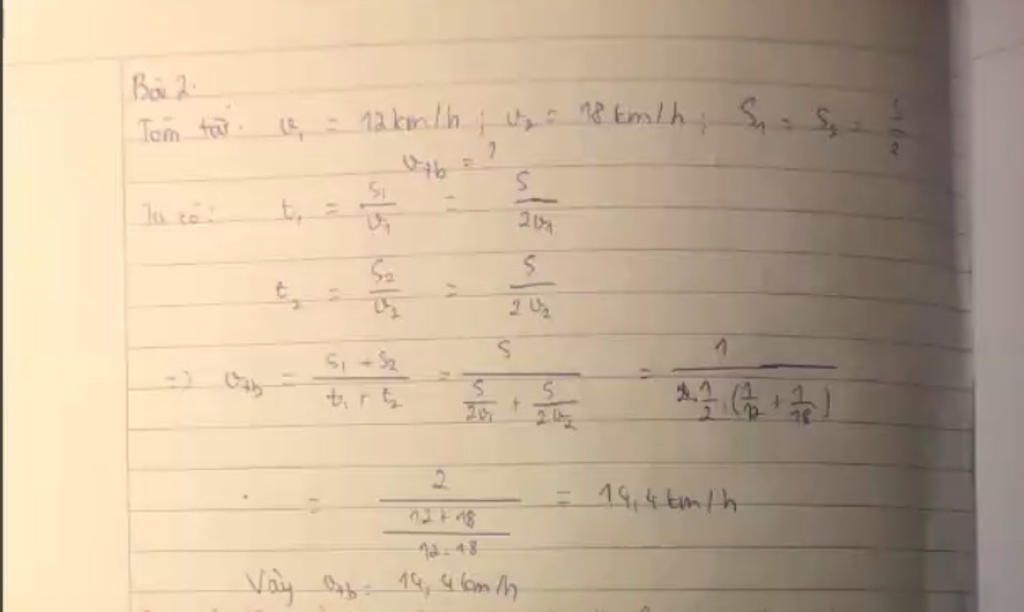 Bài 2.
Tóm tắt: v₁ = 12 km/h ; v₂ = 18 km/h ; S₁ = S₂ = S/2
v_tb = ?
Ta có: t₁ = S₁/v₁ = S/(2v₁)
t₂ = S₂/v₂ = S/(2v₂)
=> v_tb = (S₁ + S₂)/(t₁ + t₂) = S/(S/(2v₁) + S/(2v₂)) = 1/(1/2.(1/12 + 1/18))
= 2/((12 + 18)/(12.18)) = 14,4 km/h
Vậy v_tb = 14,4 km/h